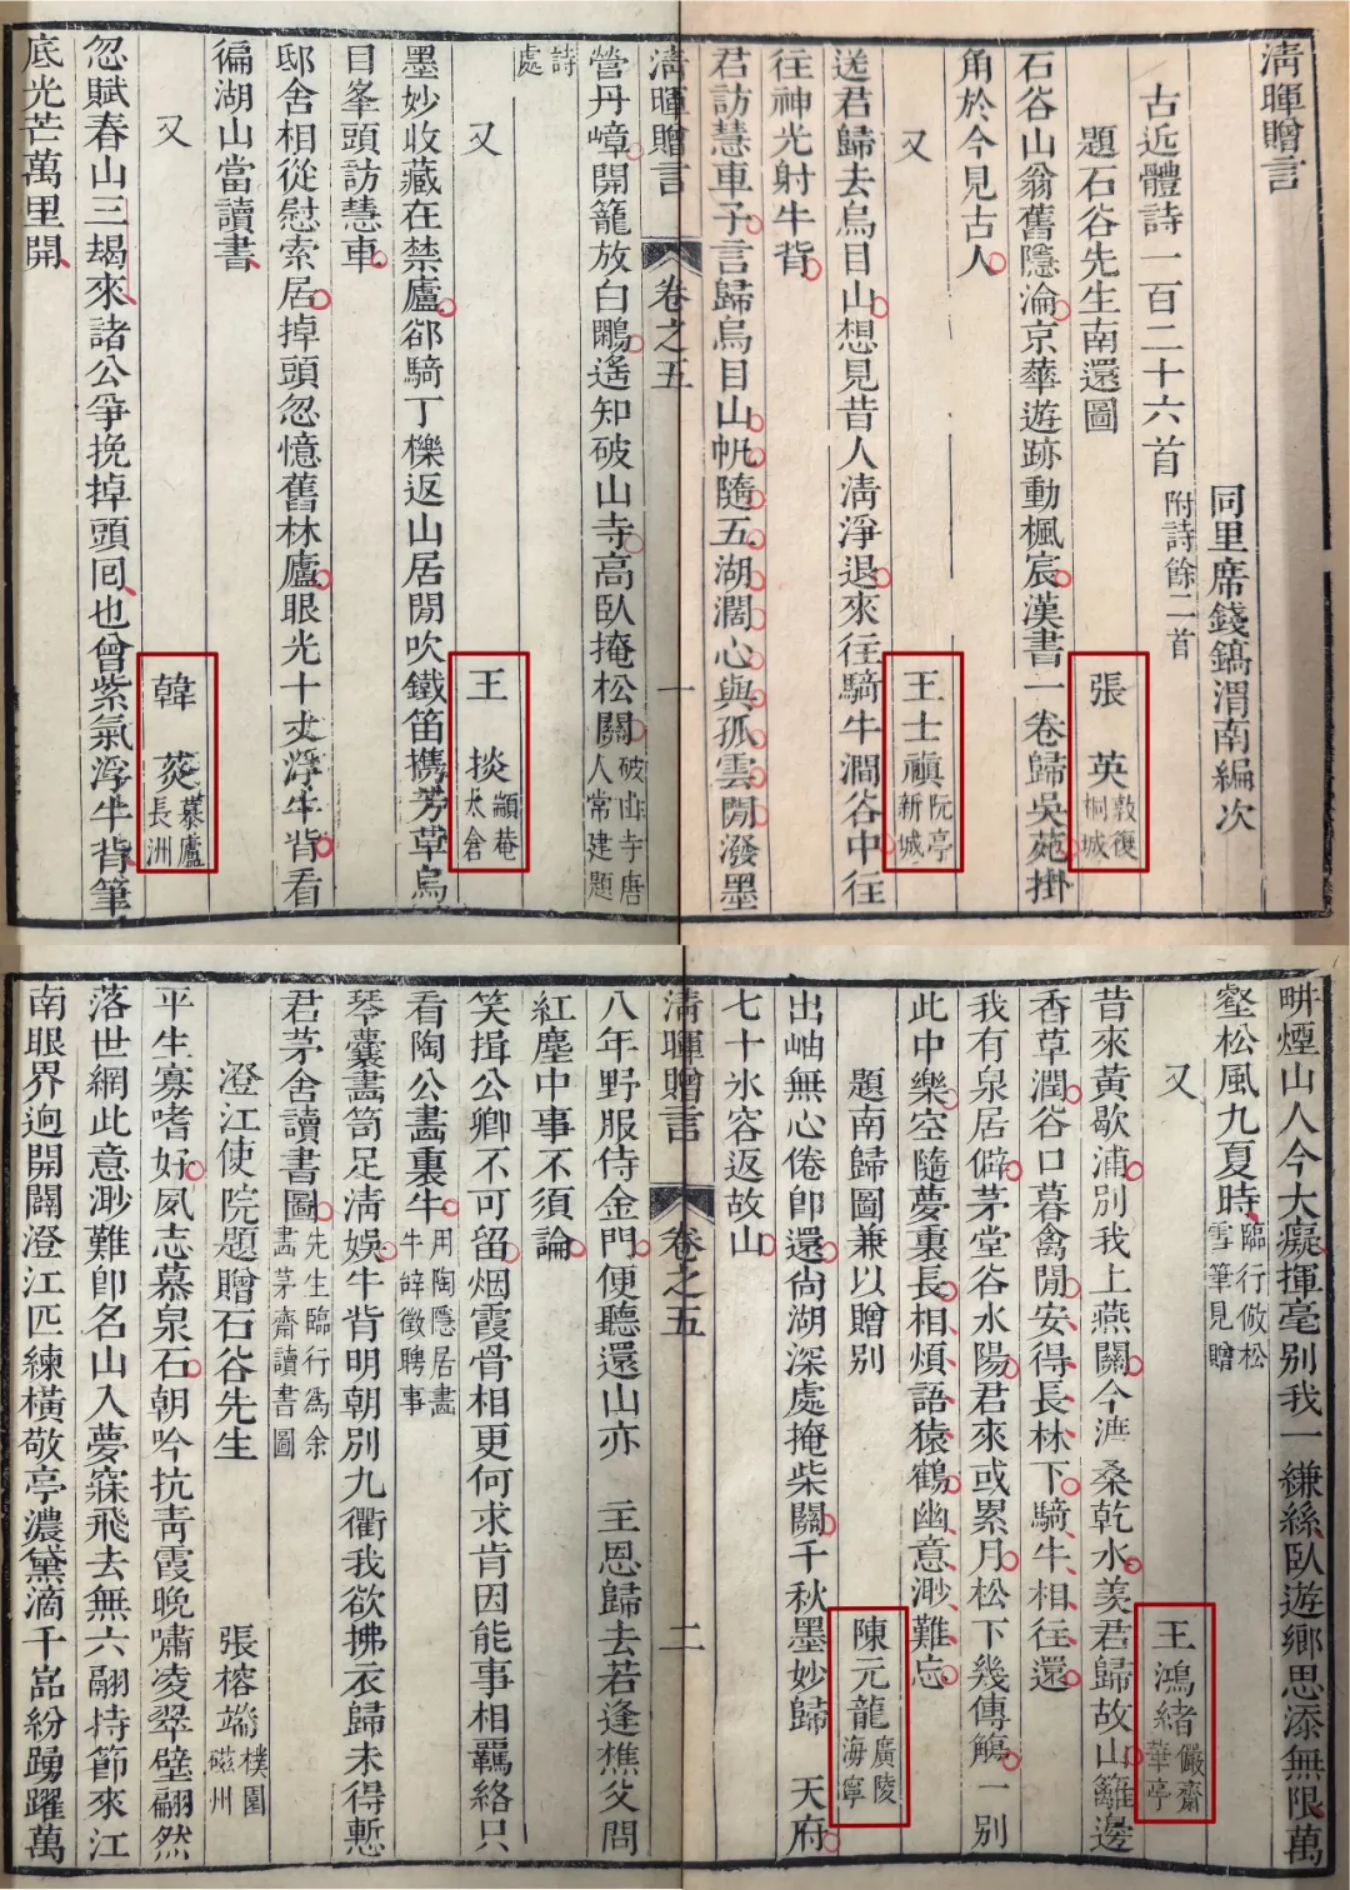 清暉贈言
同里席鎬渭南編次
古近體詩一百二十六首 附詩餘二首
題石谷先生南還圖 張 英 敦復 桐城
石谷山翁舊隱淪京華遊跡動楓宸漢書一卷歸吳苑掛
角於今見古人
又 王士禛 阮亭 新城
送君歸去烏目山想見昔人清淨退來往騎牛澗谷中往
往神光射牛背
君訪慧車子言歸烏目山帆隨五湖濶心與孤雲閒潑墨
清暉贈言 卷之五 一
營丹嶂開籠放白鷴遙知破山寺高臥掩松關 破山寺唐人常建題
詩處
又 王 掞 顓菴 太倉
墨妙收藏在禁廬郤騎丁櫟返山居閒吹鐵笛擕芳草烏
目峯頭訪慧車
邸舍相從慰索居掉頭忽憶舊林廬眼光十丈浮牛背看
徧湖山當讀書
又 韓 菼 慕廬 長洲
忽賦春山三朅來諸公爭挽掉頭囘也曾紫氣浮牛背筆
底光芒萬里開
畊煙山人今大癡揮毫別我一縑絲臥遊鄉思添無限萬
壑松風九夏時 臨行倣松雪筆見贈
又 王鴻緒 儼齋 華亭
昔來黃歇浦別我上燕關今泲桑乾水羨君歸故山籬邊
香草潤谷口暮禽閒安得長林下騎牛相往還
我有泉居僻茅堂谷水陽君來或累月松下幾傳觴一別
此中樂空隨夢裏長相煩語猿鶴幽意渺難忘
題南歸圖兼以贈別 陳元龍 廣陵 海寧
出岫無心倦卽還尙湖深處掩柴關千秋墨妙歸 天府
七十氷容返故山
清暉贈言 卷之五 二
八年野服侍金門便聽還山亦 主恩歸去若逢樵父問
紅塵中事不須論
笑揖公卿不可留烟霞骨相更何求肯因能事相羈絡只
看陶公畵裏牛 用陶隱居畵牛辭徵聘事
琴囊畵笥足淸娛牛背明朝別九衢我欲拂衣歸未得慙
君茅舍讀書圖 先生臨行爲余畵茅齋讀書圖
澄江使院題贈石谷先生 張榕端 樸園 磁州
平生寡嗜好夙志慕泉石朝吟抗靑霞晚嘯凌翠壁翩然
落世網此意渺難卽名山入夢寐飛去無六翮持節來江
南眼界逈開闢澄江匹練橫敬亭濃黛滴千嵓紛踴躍萬